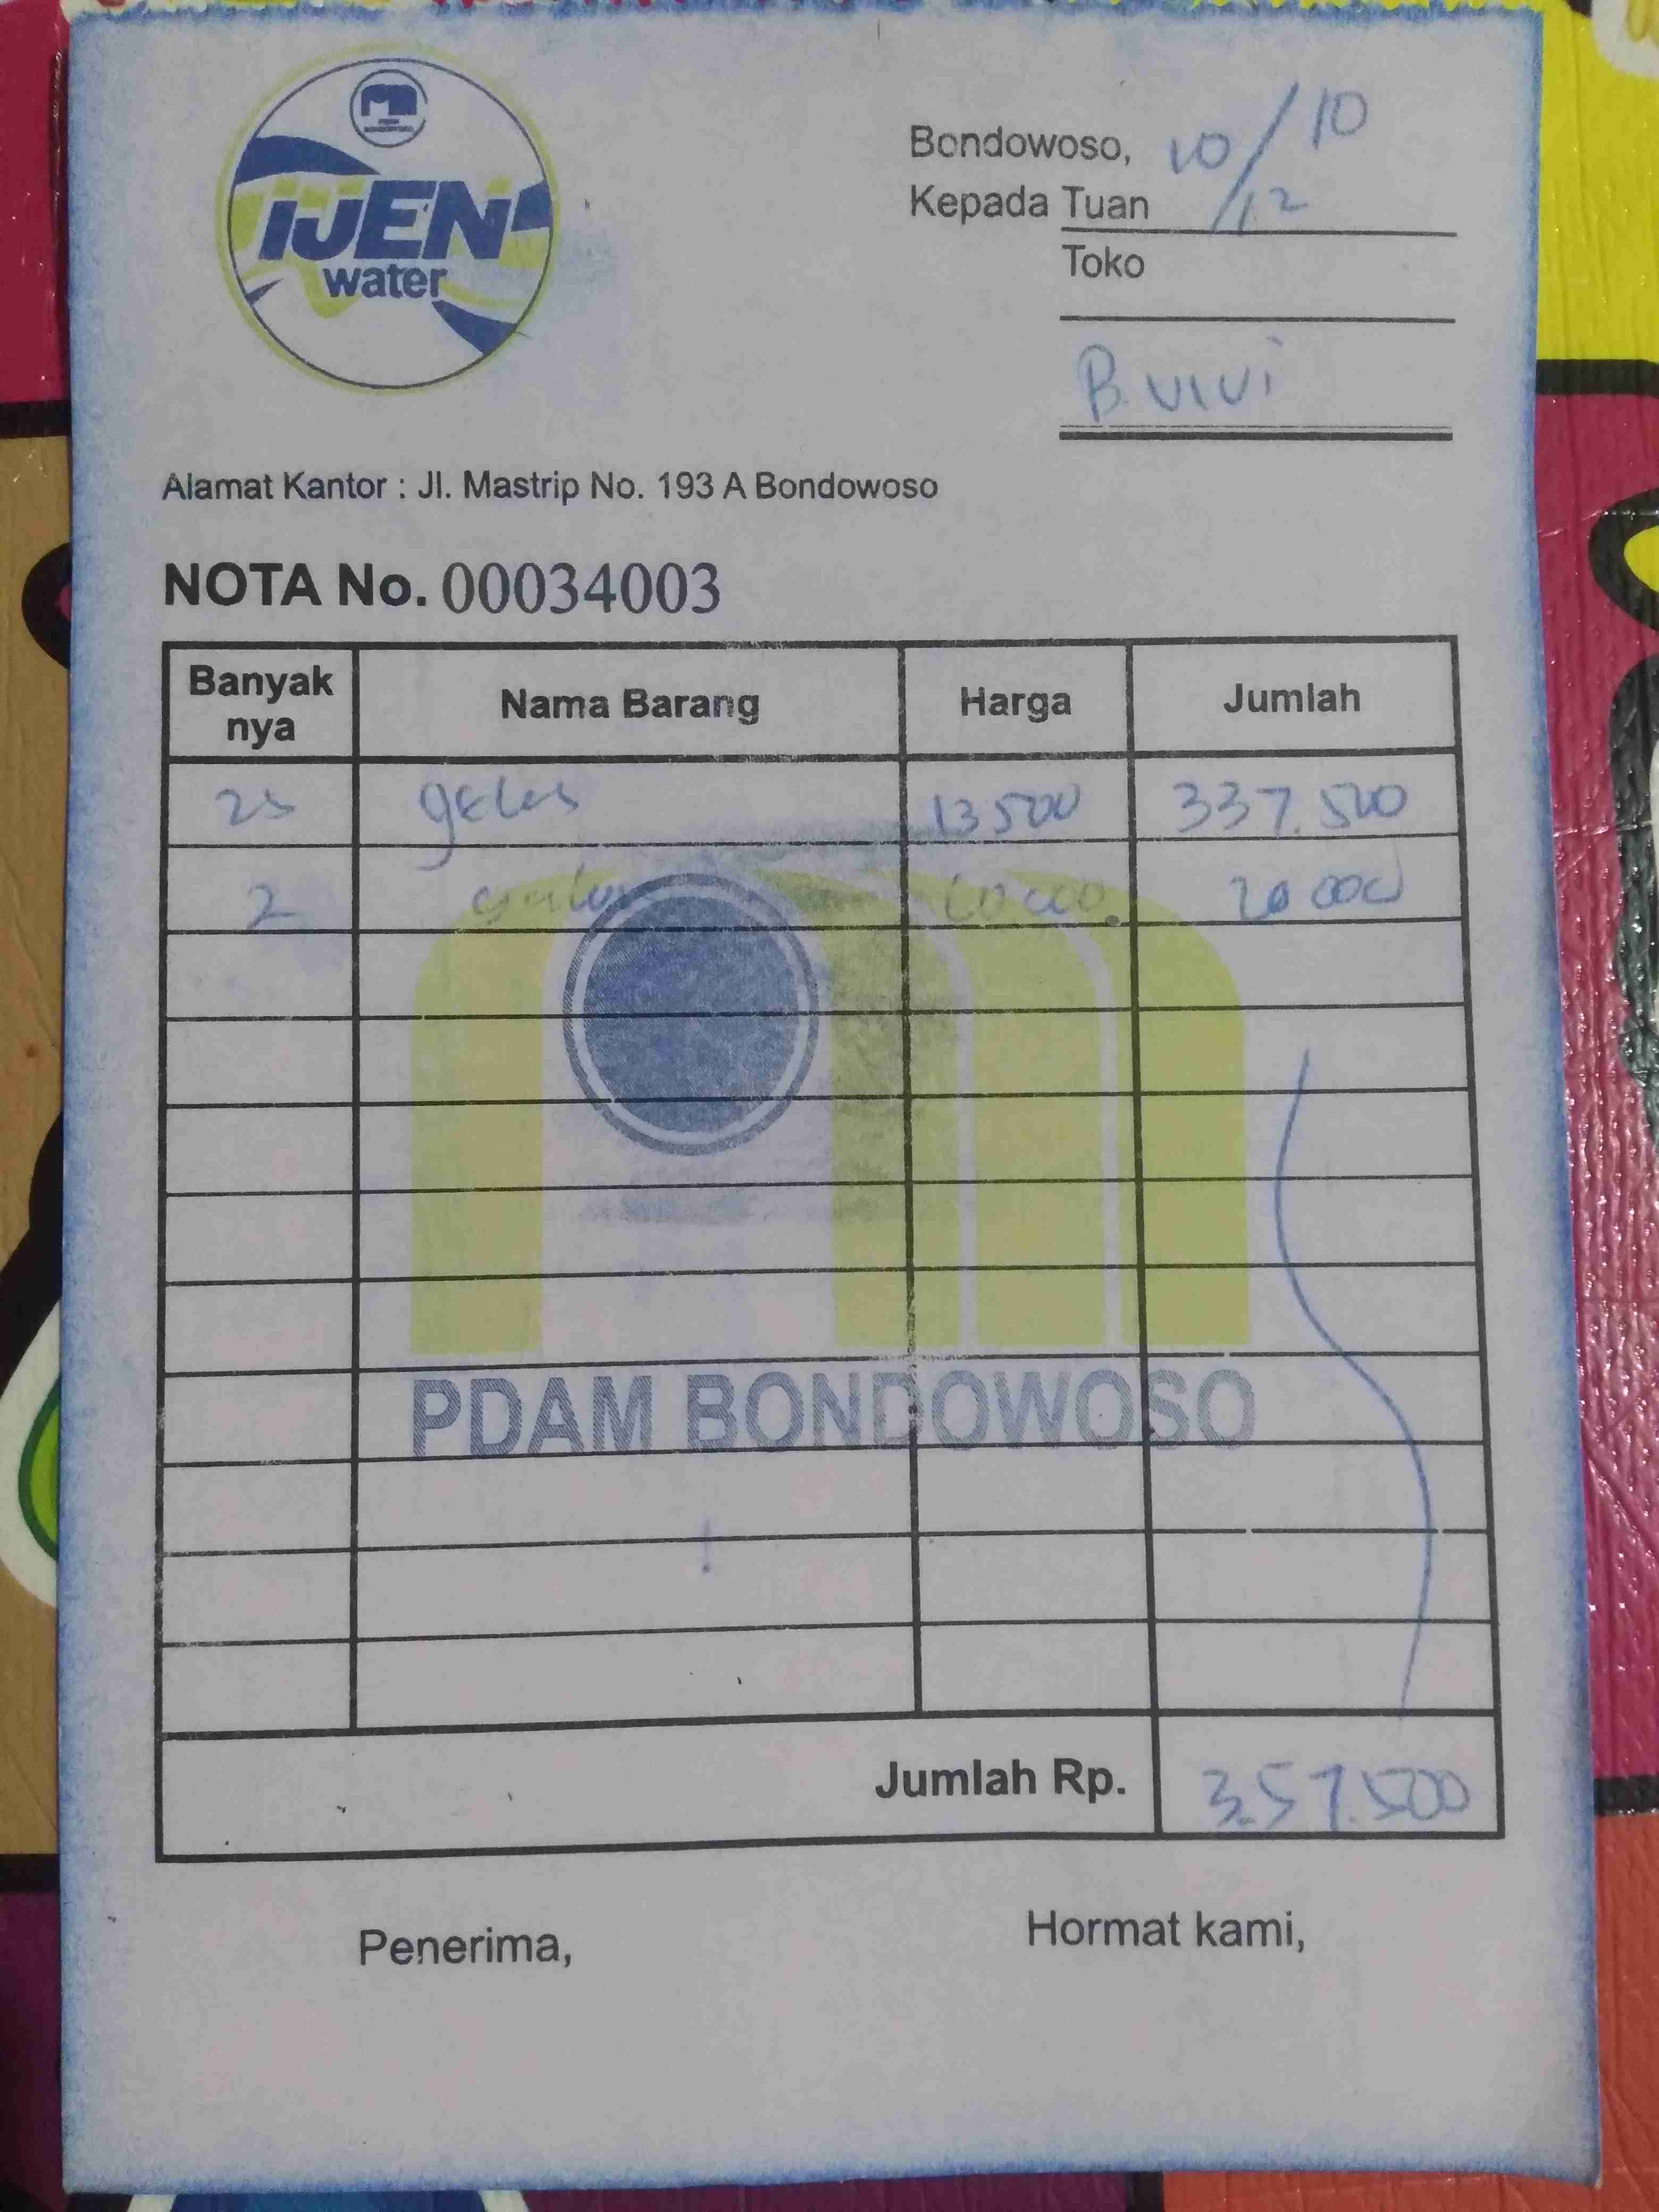 iJEN
water
Bondowoso, 10/10
Kepada Tuan /12
Toko
B. vivi
Alamat Kantor : Jl. Mastrip No. 193 A Bondowoso
NOTA No. 00034003
Banyak nya Nama Barang Harga Jumlah
25 gelas 13500 337.500
2 galon 10 000. 20 000
PDAM BONDOWOSO
Jumlah Rp. 357.500
Penerima, Hormat kami,